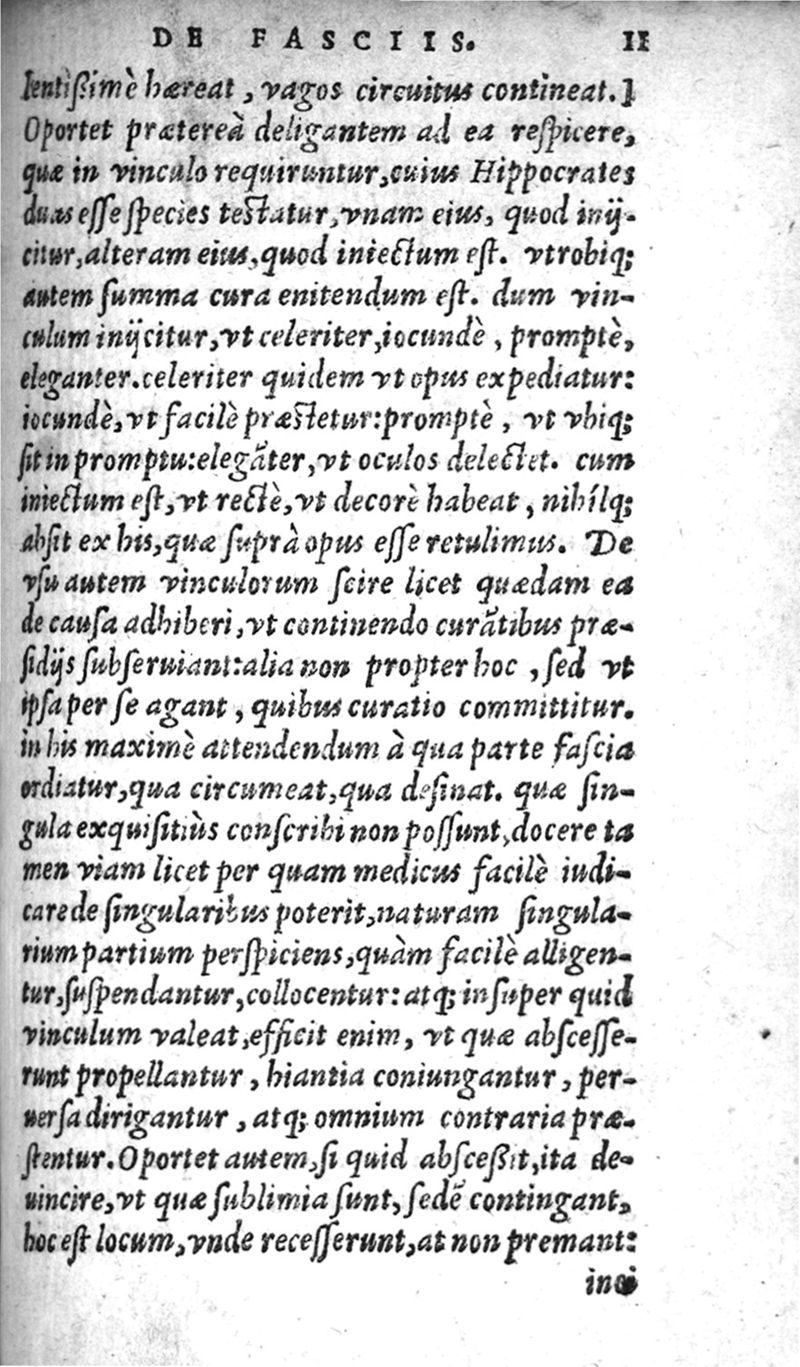 DE FASCIIS. 11
lentißimè hæreat, vagos circuitus contineat.]
Oportet prætereà deligantem ad ea reſpicere,
quæ in vinculo requiruntur, cuius Hippocrates
duas eſſe ſpecies teſtatur, vnam eius, quod inij-
citur, alteram eius, quod iniectum eſt. vtrobiq;
autem ſumma cura enitendum eſt. dum vin-
culum inijcitur, vt celeriter, iocundè, promptè,
eleganter. celeriter quidem vt opus expediatur:
iocundè, vt facilè præſtetur: promptè, vt vbiq;
ſit in promptu: elegãter, vt oculos delectet. cum
iniectum eſt, vt rectè, vt decorè habeat, nihílq;
abſit ex his, quæ ſuprà opus eſſe retulimus. De
vſu autem vinculorum ſcire licet quædam ea
de cauſa adhiberi, vt continendo curãtibus præ-
ſidijs ſubſeruiant: alia non propter hoc, ſed vt
ipſa per ſe agant, quibus curatio committitur.
in his maximè attendendum à qua parte faſcia
ordiatur, qua circumeat, qua deſinat. quæ ſin-
gula exquiſitiùs conſcribi non poſſunt, docere ta
men viam licet per quam medicus facilè iudi-
care de ſingularibus poterit, naturam ſingula-
rium partium perſpiciens, quàm facilè alligen-
tur, ſuſpendantur, collocentur: atq; inſuper quid
vinculum valeat, efficit enim, vt quæ abſceſſe-
runt propellantur, hiantia coniungantur, per-
uerſa dirigantur, atq; omnium contraria præ-
ſtentur. Oportet autem, ſi quid abſceßit, ita de-
uincire, vt quæ ſublimia ſunt, ſedẽ contingant,
hoc eſt locum, vnde receſſerunt, at non premant: